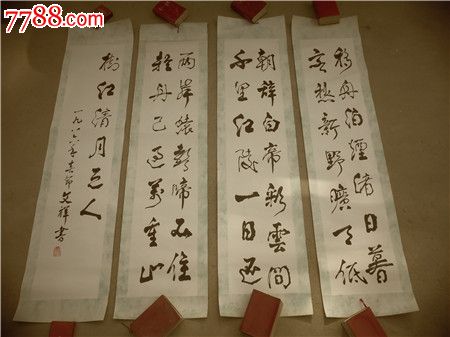 7788.com
移舟泊煙渚日暮
客愁新野曠天低
朝辞白帝彩雲間
千里江陵一日還
两岸猿聲啼不住
轻舟已过萬重山
樹江清月近人
一九八八年春节文祥書